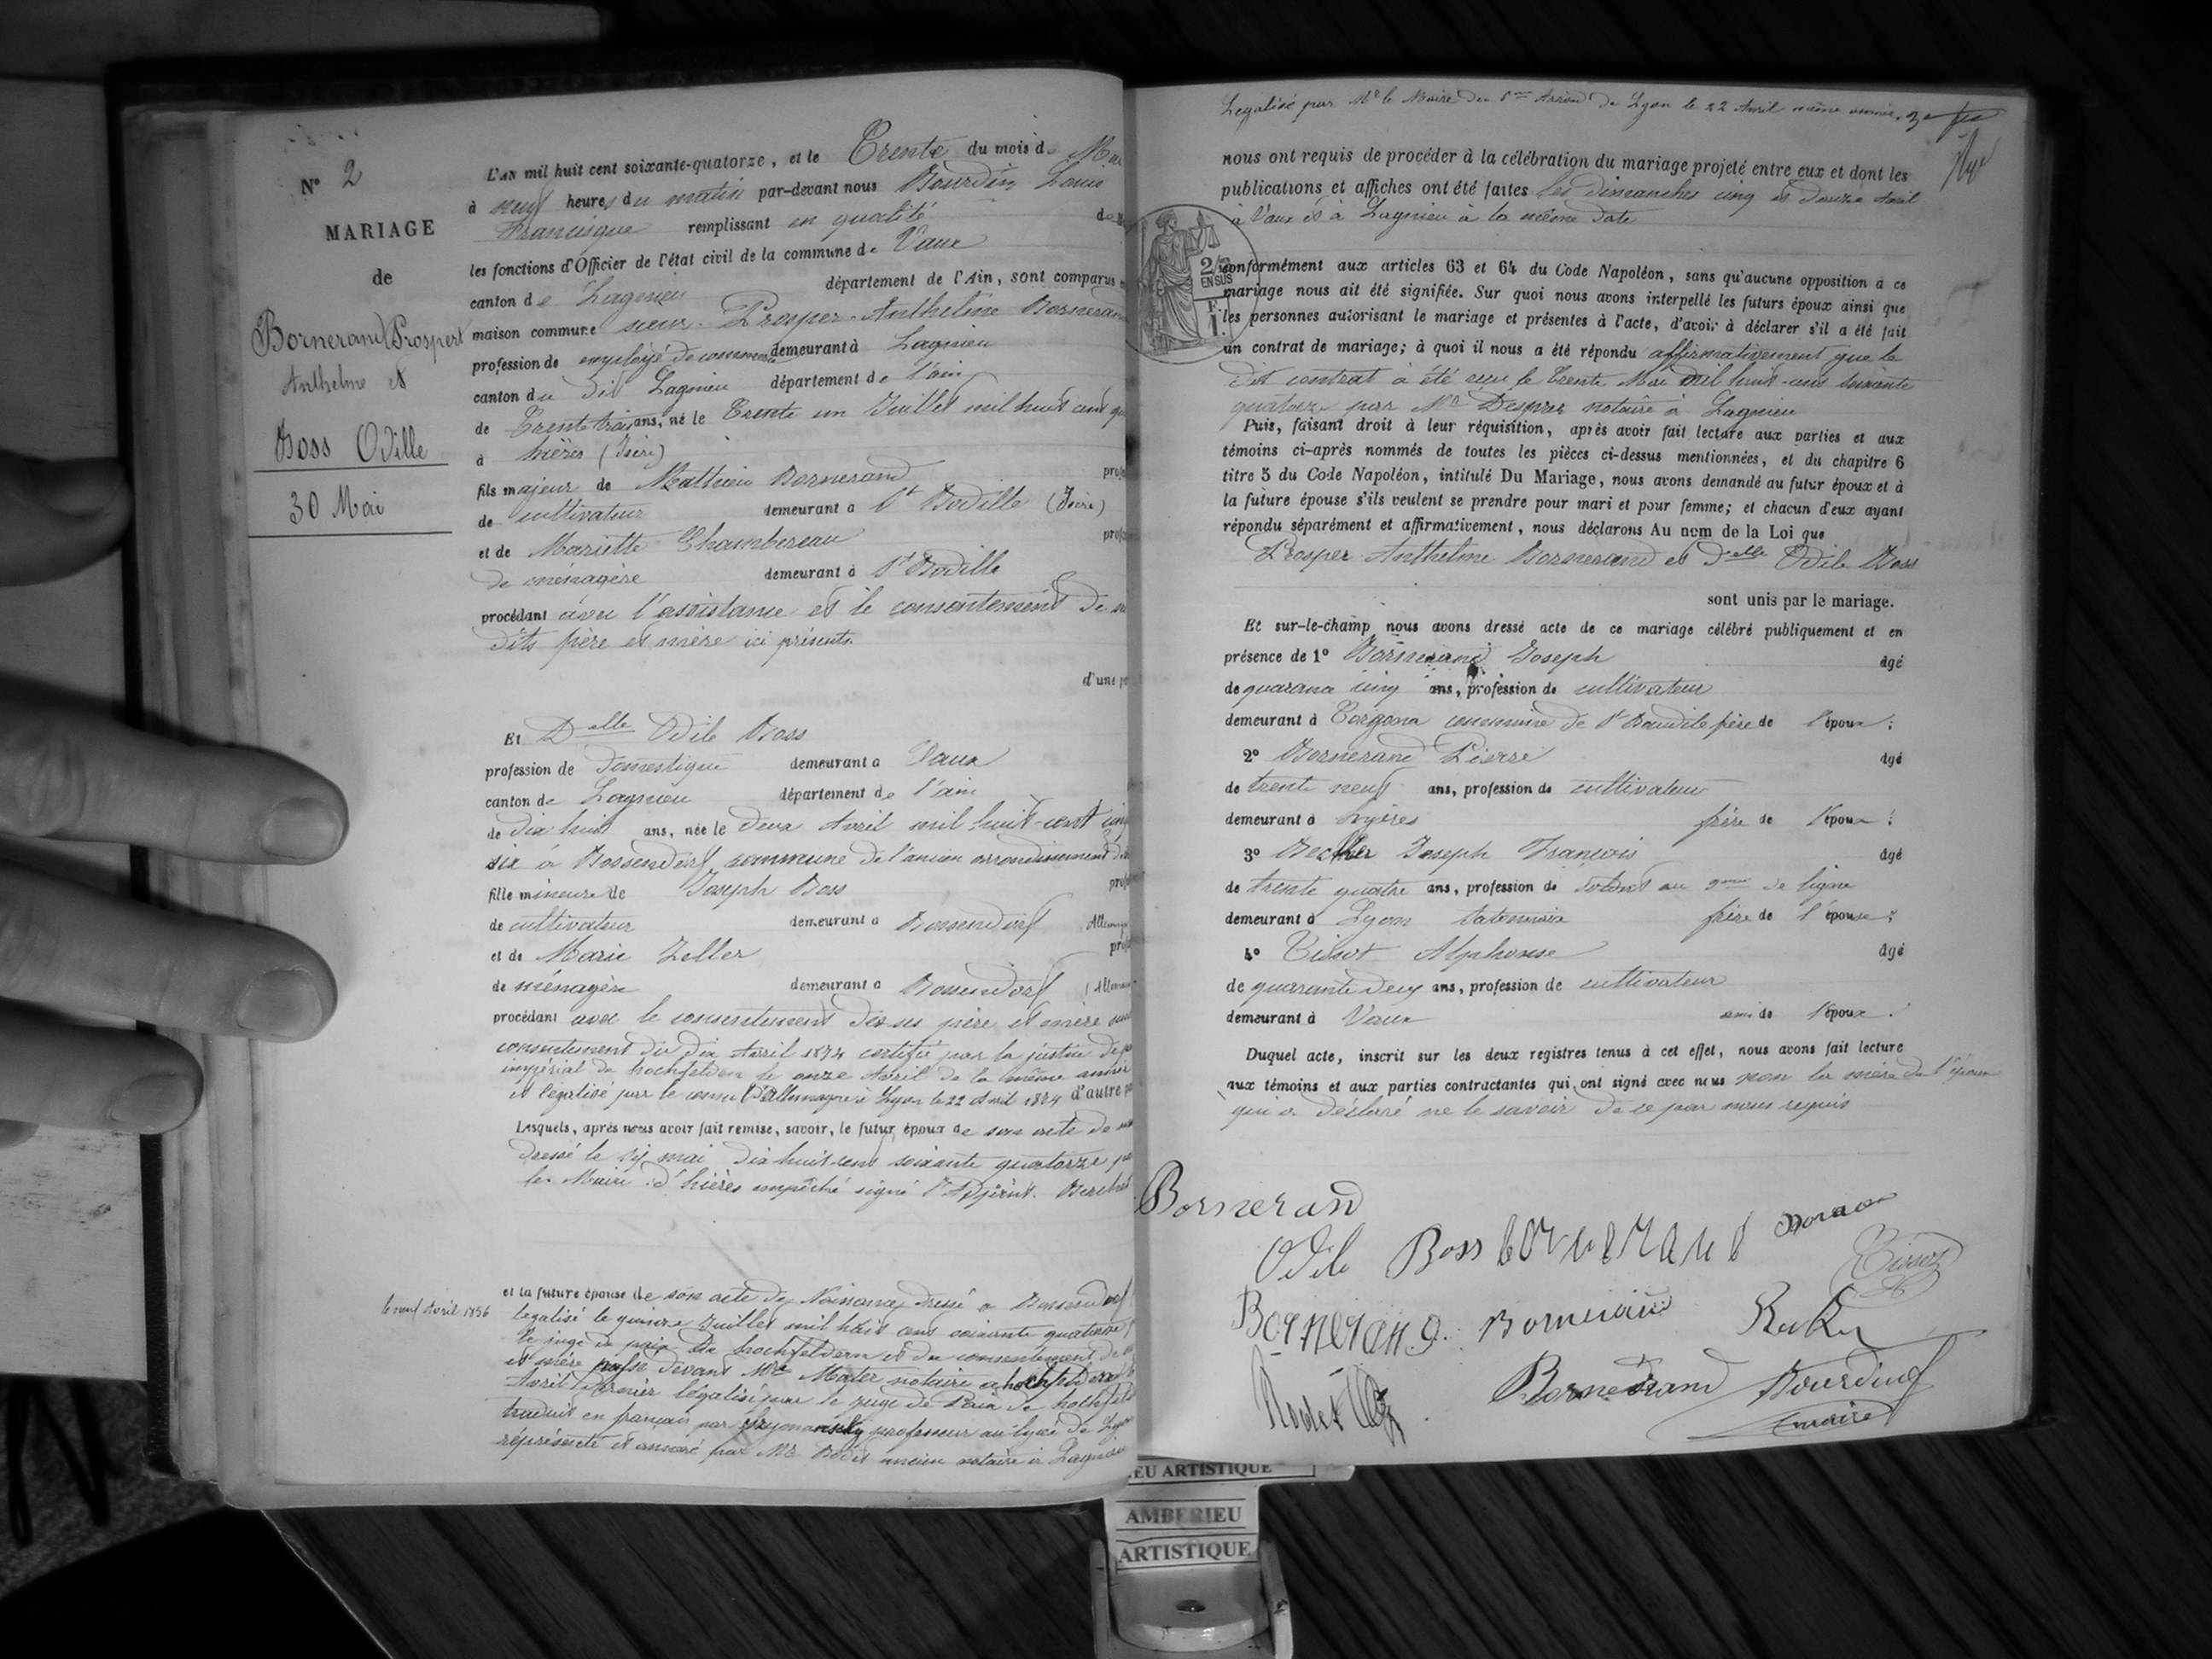 N° 2
MARIAGE
de
Bornerand Prospert
Anthelme et
Boss Odille
30 Mai
L'AN mil huit cent soixante-quatorze, et le Trente du mois de Mai
à neuf heures du matin par-devant nous Bourdin Louis
Francisque remplissant en qualité de
les fonctions d'Officier de l'état civil de la commune de Vaux
canton de Lagnieu département de l'Ain, sont comparus
maison commune sieur Prosper Anthelme Bornerand
profession de employé de commerce demeurant à Lagnieu
canton du dit Lagnieu département de l'ain
de Trente trois ans, né le Trente un Juillet mil huit cent
à hières (Isère)
fils majeur de Mathieu Bornerand
de cultivateur demeurant à St Bodille (Isère)
et de Mariette Chambereau
de ménagère demeurant à St Bodille
procédant avec l'assistance et le consentement de
dits père et mère ici présents.
d'une
Et Delle Odile Boss
profession de Domestique demeurant à Vaux
canton de Lagnieu département de l'ain
de dix huit ans, née le deux Avril mil huit-cent cinq
six à Bossendorf commune de l'ancien arrondissement
fille mineure de Joseph Boss
de cultivateur demeurant à Bossendorf
et de Marie Zeller
de ménagère demeurant à Bossendorf
procédant avec le consentement de ses père et mère
consentement du dix Avril 1874 certifié par la justice de
impérial de hochfelden le onze Avril de la même année
et légalisé par le consul d'Allemagne à Lyon le 22 Avril 1874 d'autre
Lesquels, après nous avoir fait remise, savoir, le futur époux de son acte de
dressé le six mai dix huit-cent soixante quatorze
le Maire d'hières empêché signé l'Adjoint.
le neuf Avril 1856
et la future épouse de son acte de Naissance dressé à Bossendorf
légalisé le quinze Juillet mil huit cent soixante quatorze
le juge de paix de hochfeldern et du consentement de
et mère passé devant Me Mater notaire à hochfelden
Avril dernier légalisé par le juge de Paix de
traduit en français par professeur au lycée de Lyon
représenté et annexé par Me Bodet ancien notaire à Lagnieu
Légalisé par Mr le Maire du Arrondt de Lyon le 22 Avril même année.
nous ont requis de procéder à la célébration du mariage projeté entre eux et dont les
publications et affiches ont été faites les dimanches cinq et douze Avril
à Vaux et à Lagnieu à la même date
2/10 EN SUS
F. 1.
conformément aux articles 63 et 64 du Code Napoléon, sans qu'aucune opposition à ce
mariage nous ait été signifiée. Sur quoi nous avons interpellé les futurs époux ainsi que
les personnes autorisant le mariage et présentes à l'acte, d'avoir à déclarer s'il a été fait
un contrat de mariage; à quoi il nous a été répondu affirmativement que le
dit contrat à été reçu le Trente Mai mil huit-cent soixante
quatorze par Me Desprez notaire à Lagnieu
Puis, faisant droit à leur réquisition, après avoir fait lecture aux parties et aux
témoins ci-après nommés de toutes les pièces ci-dessus mentionnées, et du chapitre 6
titre 5 du Code Napoléon, intitulé Du Mariage, nous avons demandé au futur époux et à
la future épouse s'ils veulent se prendre pour mari et pour femme; et chacun d'eux ayant
répondu séparément et affirmativement, nous déclarons Au nom de la Loi que
Prosper Anthelme Bornerand et Delle Odile Boss
sont unis par le mariage.
Et sur-le-champ nous avons dressé acte de ce mariage célébré publiquement et en
présence de 1° Bornerand Joseph âgé
de quarana cinq ans, profession de cultivateur
demeurant à commune de St Baudile frère de l'époux;
2° Bornerand Pierre âgé
de trente neuf ans, profession de cultivateur
demeurant à hyères frère de l'époux;
3° Joseph François âgé
de trente quatre ans, profession de soldat au de ligne
demeurant à Lyon frère de l'épouse;
4° Tissot Alphonse âgé
de quarante deux ans, profession de cultivateur
demeurant à Vaux ami de l'époux.
Duquel acte, inscrit sur les deux registres tenus à cet effet, nous avons fait lecture
aux témoins et aux parties contractantes qui ont signé avec nous non la mère de l'époux
qui a déclaré ne le savoir de ce par nous requis
Bornerand
Odile Boss bornerand
Tissot
Bornerand Bornerand
Bornerand Bourdin
maire
EU ARTISTIQUE
AMBERIEU
ARTISTIQUE